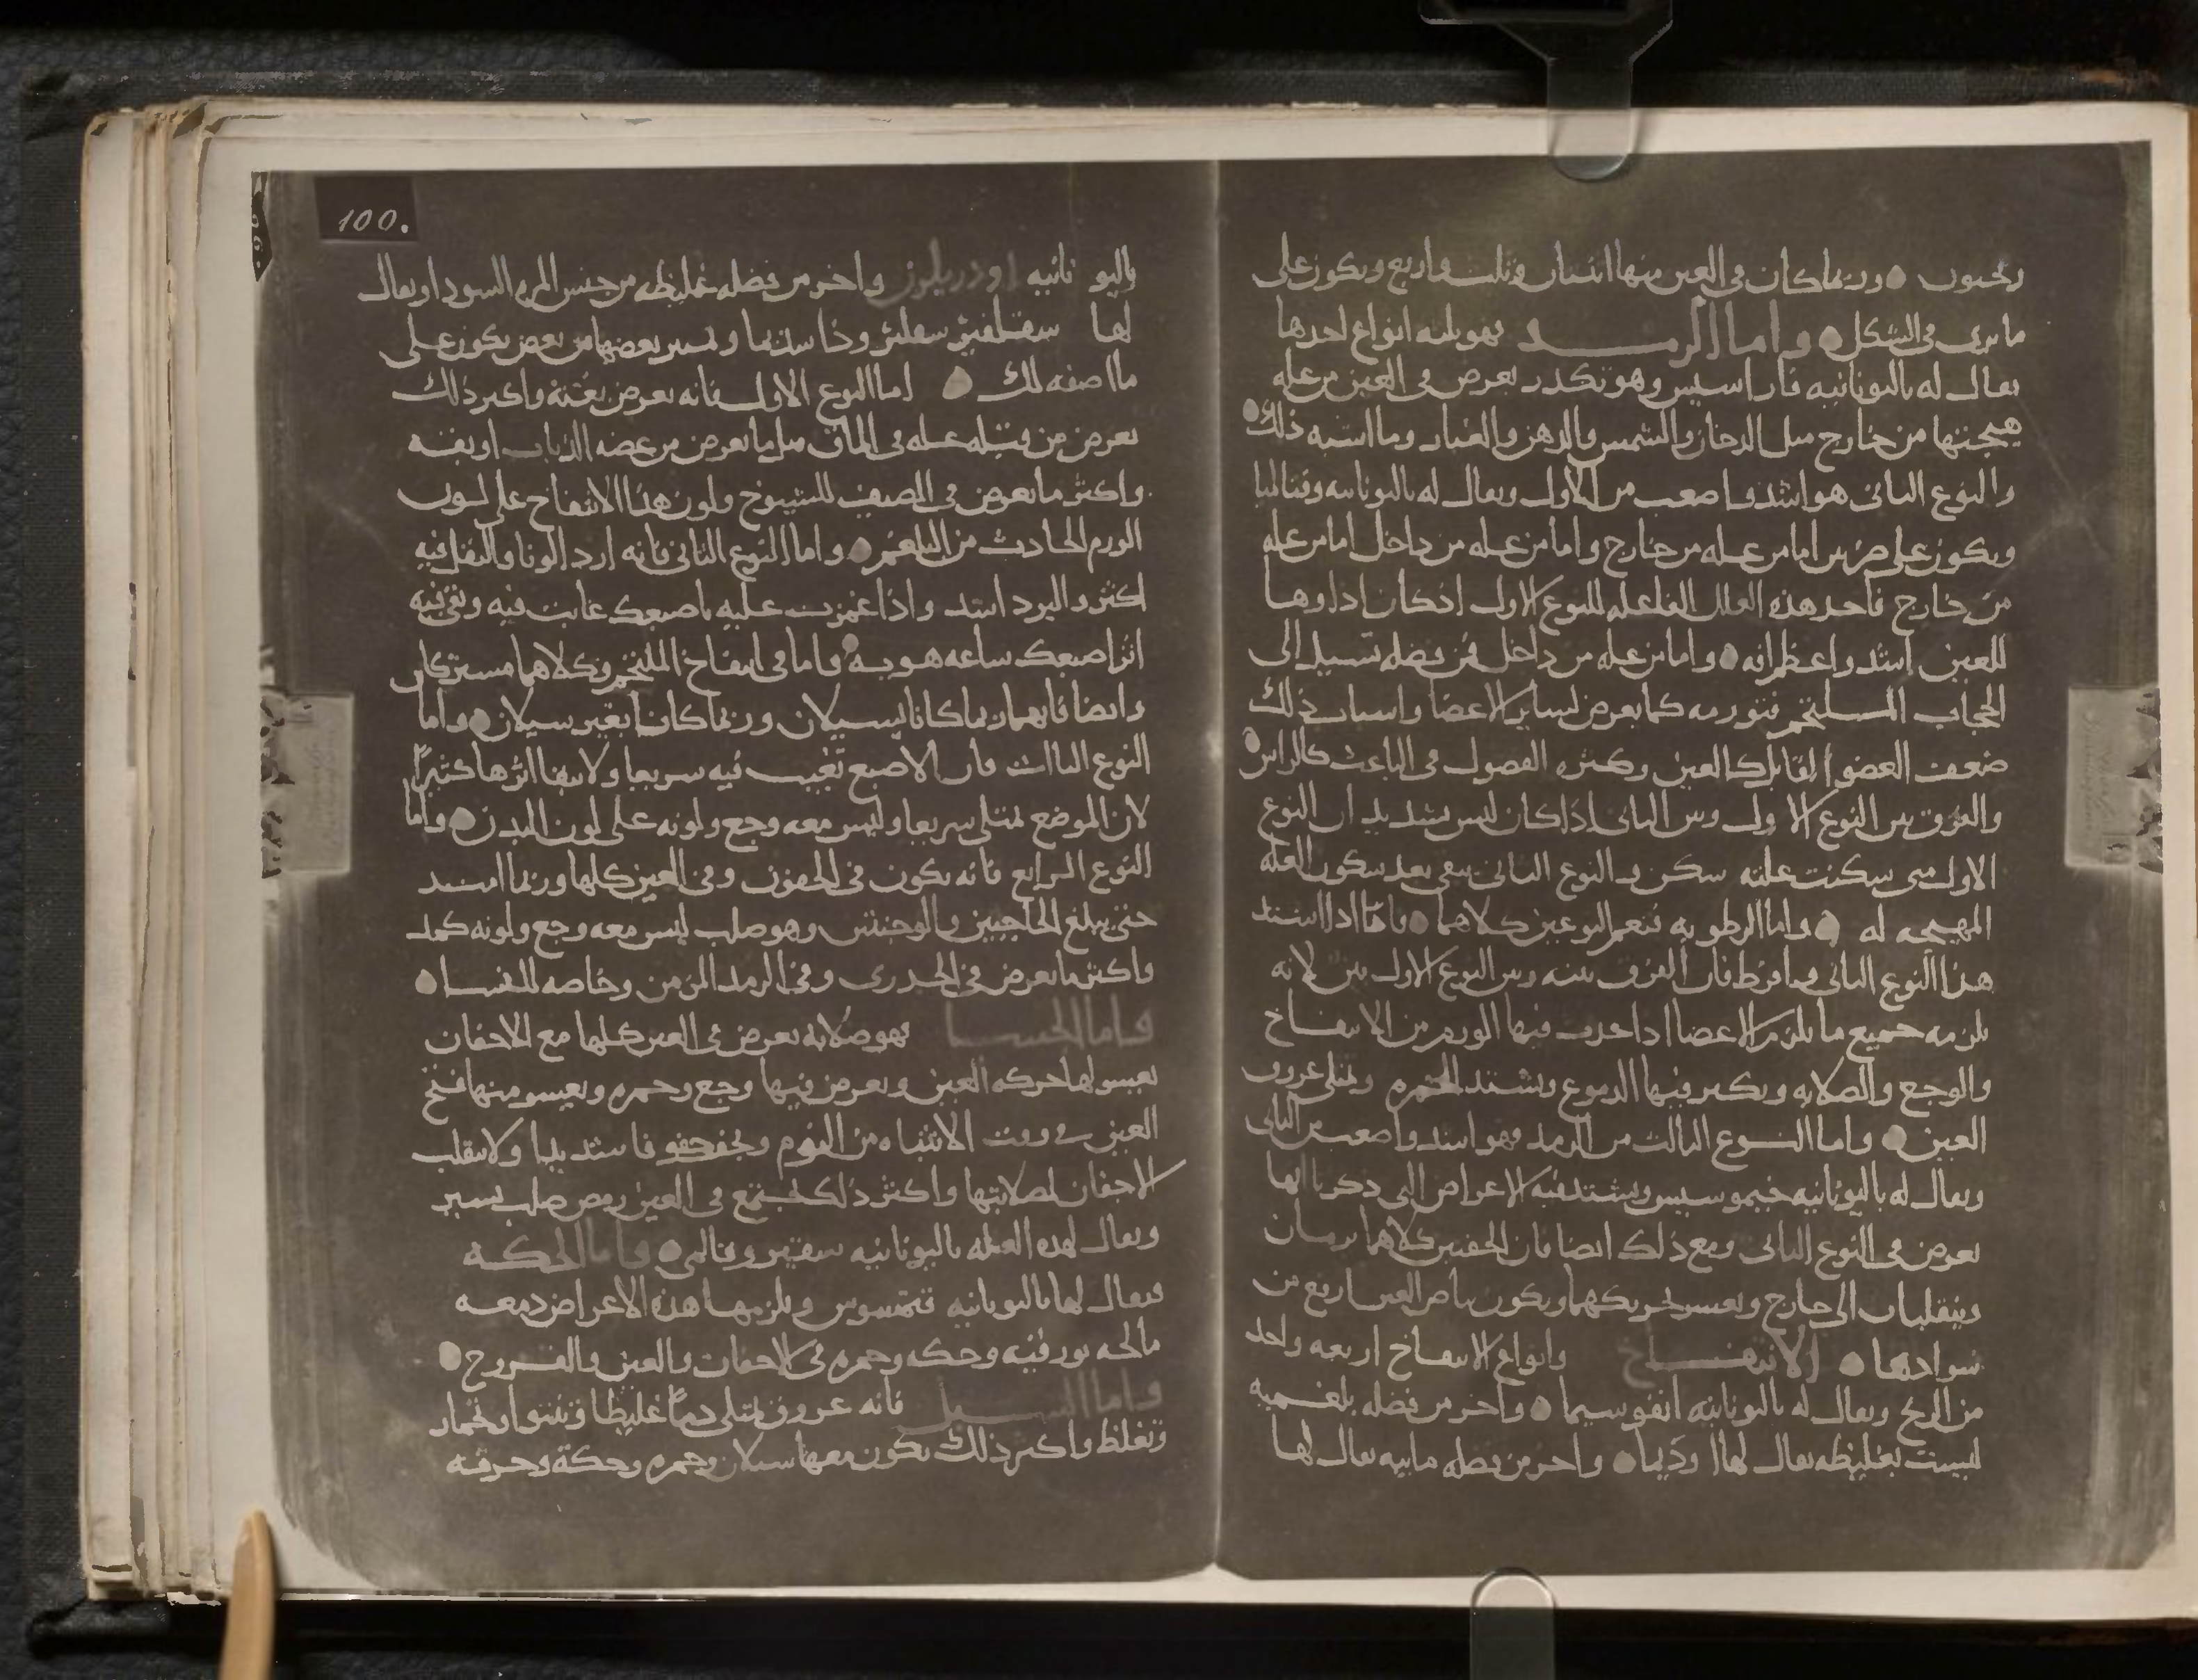 وتحبون ٥ وربما كان في العين منها اثنتان وثلث واربع ويكون على
ما يرى في الشكل ٥ واما الرمد فهو ثلثه انواع احدها
يقال له باليونانيه تاراكسيس وهو تكدر يعرض في العين من عله
هيجتها من خارج مثل الدخان والشمس والدهن والغبار وما اشبه ذلك ٥
والنوع الثاني هو اشد واصعب من الاول ويقال له باليونانيه
ويكون على ضربين اما من عله من خارج واما من عله من داخل اما من عله
من خارج فاحد هذه العلل الفاعله للنوع الاول اذ كان اذاوها
للعين اشد واعظم انه ٥ واما من عله من داخل فمن فضله تسيل الى
الحجاب الملتحم فتورمه كما يعرض لساير الاعضا واسباب ذلك
ضعف العضو القابل كالعين وكثره الفضول في الباعث كالراس ٥
والفرق بين النوع الاول وبين الثاني اذا كان ليس بشديد ان النوع
الاول متى سكنت علته سكن والنوع الثاني يبقى بعد سكون العله
المهيجه له ٥ واما الرطوبه فتعم النوعين كلاهما ٥ فاما اذا اشتد
هذا النوع الثاني وافرط فان الفرق بينه وبين النوع الاول بين لانه
يلزمه جميع ما يلزم الاعضا اذا حدث فيها الورم من الانتفاخ
والوجع والصلابه ويكثر فيها الدموع وتشتد الحمره وتمتلي عروق
العين ٥ واما النوع الثالث من الرمد فهو اشد واصعب من الثاني
ويقال له باليونانيه خيموسيس ويشتد فيه الاعراض التي ذكرنا انها
تعرض في النوع الثاني ومع ذلك ايضا فان الجفنين كلاهما يرمان
وينقلبان الى خارج ويعسر تحريكهما ويكون بياض العين ارفع من
سوادها ٥ الانتفاخ وانواع الانتفاخ اربعه واحد
من الريح ويقال له باليونانيه انفوسيما ٥ واخر من فضله بلغميه
ليست بغليظه يقال لها اوذيما ٥ واخر من فضله مائيه يقال لها
100.
باليونانيه واخر من فضله غليظه من جنس المره السودا ويقال
لها وتميز بعضها من بعض يكون على
ما اصفه لك ٥ اما النوع الاول فانه يعرض بغته واكثر ذلك
يعرض من قبل عله في الماق مثل ما يعرض من عضه الذباب او بقه
واكثر ما يعرض في الصيف للشيوخ ولون هذا الانتفاخ على لون
الورم الحادث من البلغم ٥ واما النوع الثاني فانه اردا لونا والثقل فيه
اكثر والبرد اشد واذا غمزت عليه باصبعك غابت فيه وبقي فيه
اثر اصبعك ساعه هويه ٥ واما في انتفاخ الملتحم وكلاهما مشتركان
وايضا فانهما ربما كانا بسيلان وربما كانا بغير سيلان ٥ واما
النوع الثالث فان الاصبع تغيب فيه سريعا ولا يبقا اثرها كثيرا
لان الموضع يمتلي سريعا وليس معه وجع ولونه على لون البدن ٥ واما
النوع الرابع فانه يكون في الجفون وفي العين كلها وربما امتد
حتى يبلغ الحاجبين والوجنتين وهو صلب ليس معه وجع ولونه كمد
واكثر ما يعرض في الجدري وفي الرمد المزمن وخاصه للنسا ٥
واما الجسا فهو صلابه تعرض في العين كلها مع الاجفان
يعسر لها حركه العين ويعرض فيها وجع وحمره ويعسر منها فتح
العين في وقت الانتباه من النوم وتجف جفوفا شديدا ولا تنقلب
الاجفان لصلابتها واكثر ذلك يجتمع في العين رمص صلب يسير
ويقال لهذه العله باليونانيه ٥ واما الحكه
فيقال لها باليونانيه ويلزمها هذه الاعراض دمعه
مالحه بورقيه وحكه وحمره في الاجفان والعين والقروح ٥
واما السبل فانه عروق تمتلي دما غليظا وتنتوا وتحمار
وتغلظ واكثر ذلك يكون معها سيلان وحمره وحكة وحرقه